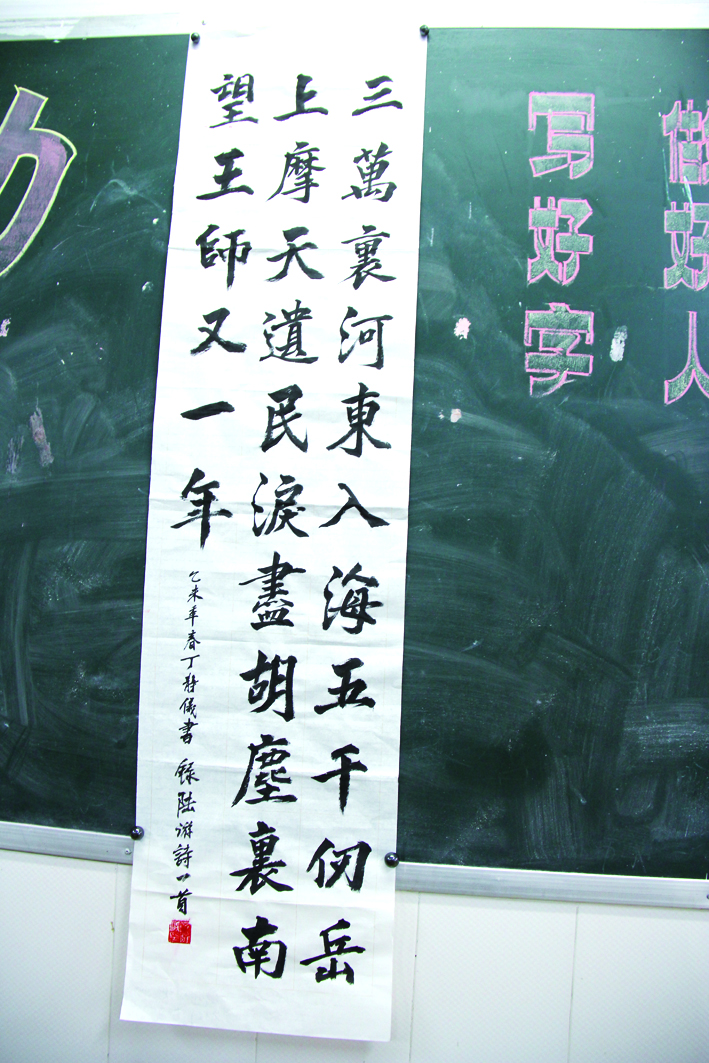 做好人
写好字
三萬裏河東入海五千仞岳
上摩天遺民淚盡胡塵裏南
望王師又一年
乙未年春丁静儀書 録陆游詩一首